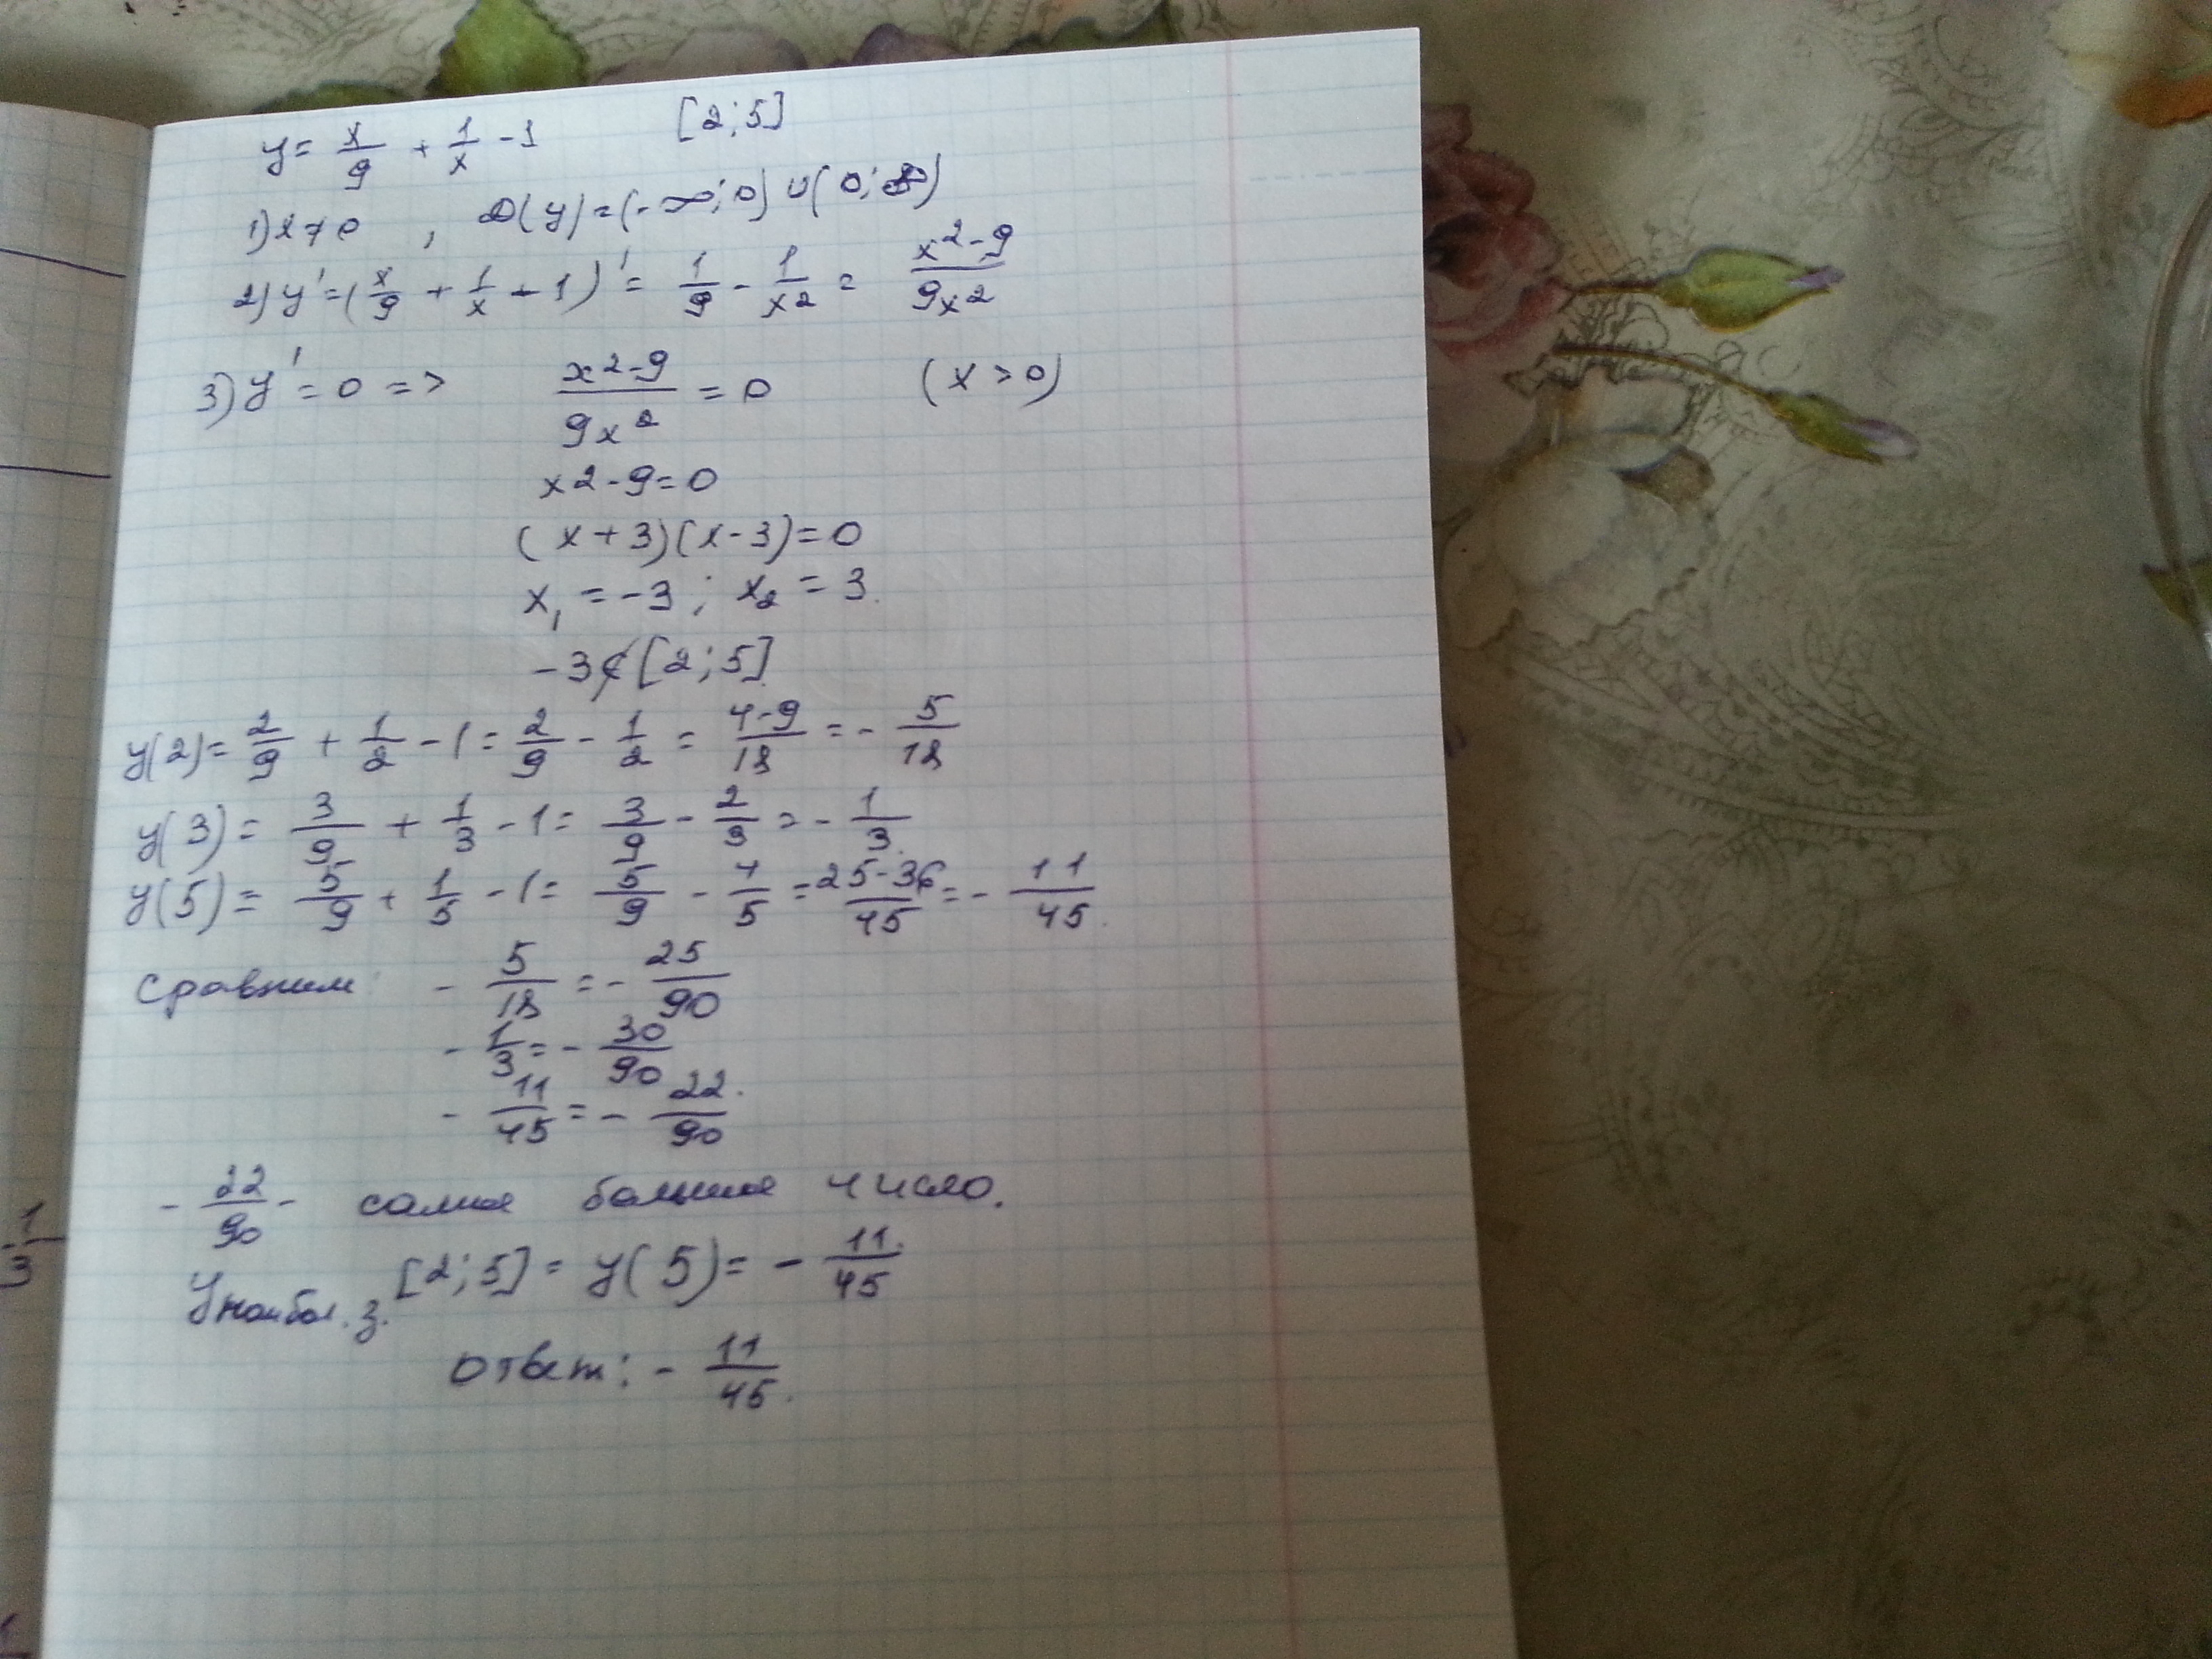 y = x/9 + 1/x - 1 [2; 5]
1) x ≠ 0, D(y) = (-∞; 0) ∪ (0; ∞)
2) y' = (x/9 + 1/x - 1)' = 1/9 - 1/x² = (x² - 9)/(9x²)
3) y' = 0 => (x² - 9)/(9x²) = 0 (x > 0)
x2 - 9 = 0
(x + 3)(x - 3) = 0
x₁ = -3; x₂ = 3.
-3 ∉ [2; 5]
y(2) = 2/9 + 1/2 - 1 = 2/9 - 1/2 = (4 - 9)/18 = - 5/18
y(3) = 3/9 + 1/3 - 1 = 3/9 - 2/3 = - 1/3
y(5) = 5/9 + 1/5 - 1 = 5/9 - 4/5 = (25 - 36)/45 = - 11/45.
Сравним: - 5/18 = - 25/90
- 1/3 = - 30/90
- 11/45 = - 22/90
- 22/90 - самое большое число.
y наибол. з. [2; 5] = y(5) = - 11/45
Ответ: - 11/45.